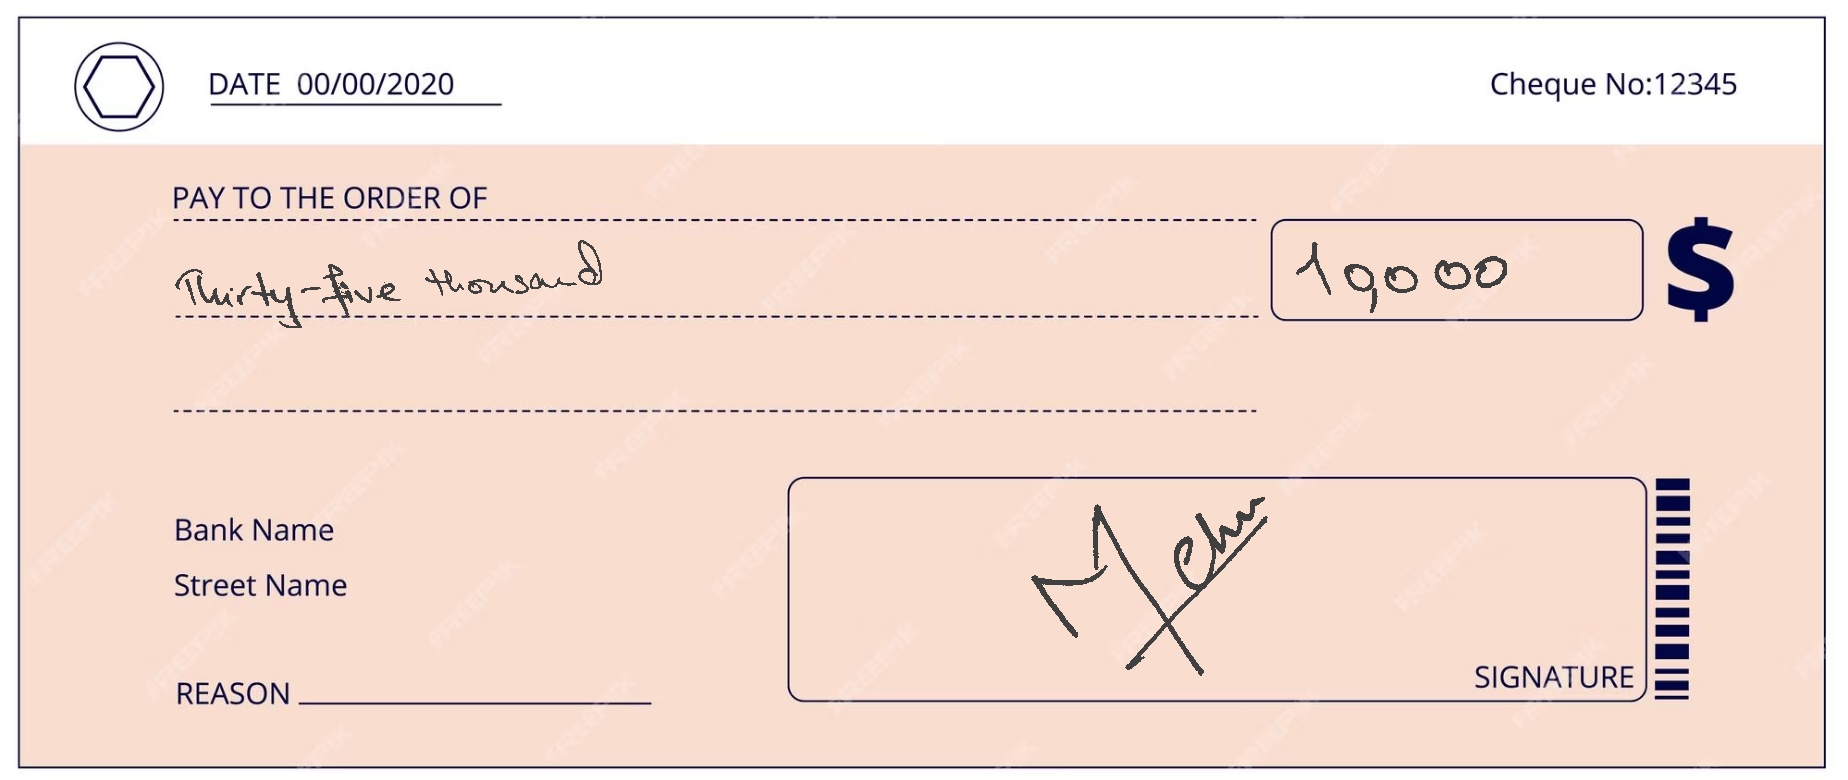 DATE 00/00/2020
Cheque No:12345
PAY TO THE ORDER OF
Thirty-five thousand
19000
$
Bank Name
Street Name
REASON
SIGNATURE